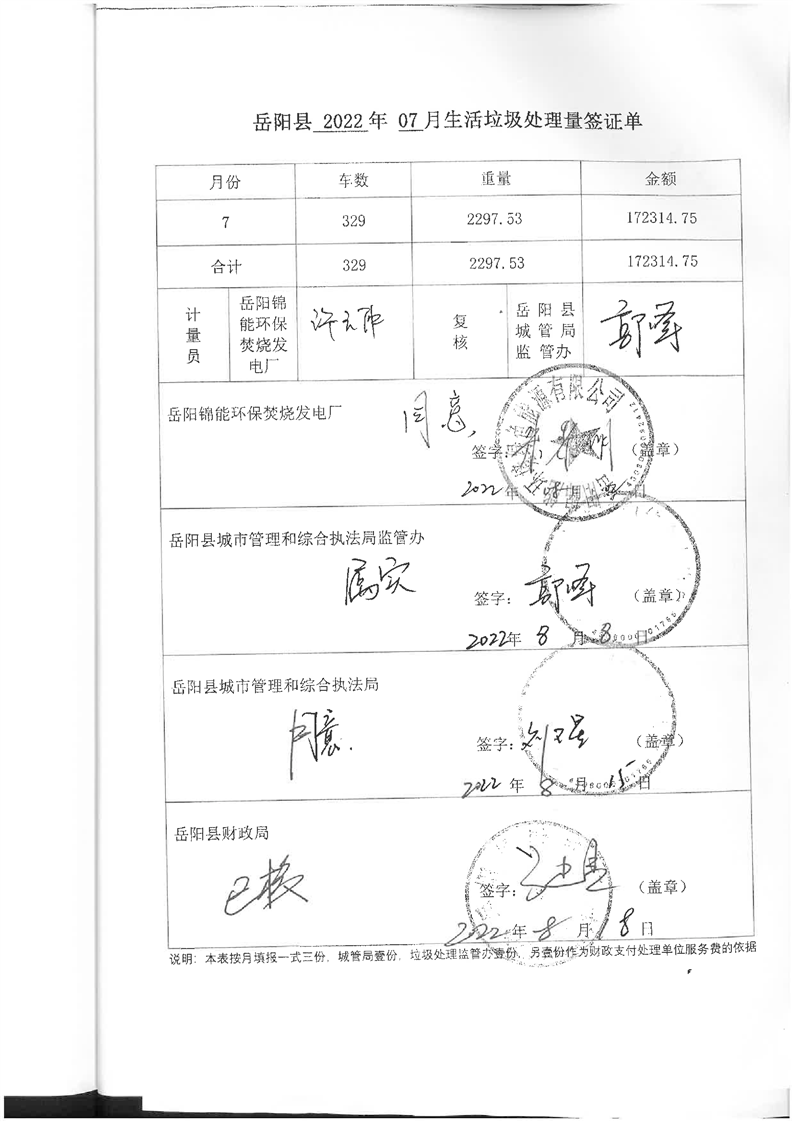 岳阳县 2022 年 07 月生活垃圾处理量签证单
月份 车数 重量 金额
7 329 2297.53 172314.75
合计 329 2297.53 172314.75
计量员 岳阳锦能环保焚烧发电厂 复核 岳阳县城管局监管办
岳阳锦能环保焚烧发电厂
同意
签字: (盖章)
2022年 月 日
岳阳县城市管理和综合执法局监管办
属实
签字: (盖章)
2022年 8 月 8 日
岳阳县城市管理和综合执法局
同意
签字: (盖章)
2022 年 8 月 15 日
岳阳县财政局
已核
签字: (盖章)
2022 年 8 月 18 日
说明: 本表按月填报一式三份, 城管局壹份, 垃圾处理监管办壹份, 另壹份作为财政支付处理单位服务费的依据